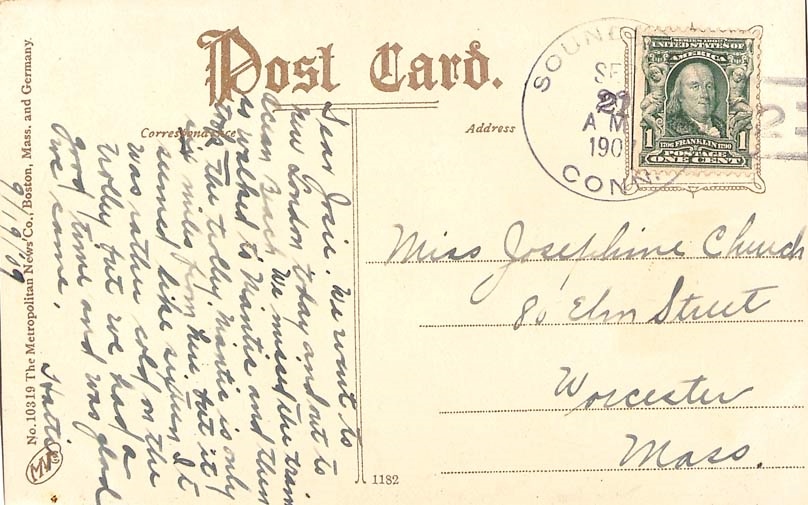 Post Card.
Correspondence
Address
No. 10319 The Metropolitan News Co., Boston, Mass. and Germany.
9/19/09
Dear Josie. We went to
New London today and out to
Ocean Beach We missed the train
so walked to Niantic and then
took the trolley. Niantic is only
six miles from here but it
seemed like sixteen. It
was rather cold on the
trolley but we had a
good time and was glad
we came.
Hattie
SOUND
SE
27
A M
190
CONN.
SERIES 1902
UNITED STATES OF
AMERICA
1 1706 FRANKLIN 1790 1
POSTAGE
ONE CENT
Miss Josephine Church
80 Elm Street
Worcester
Mass.
1182